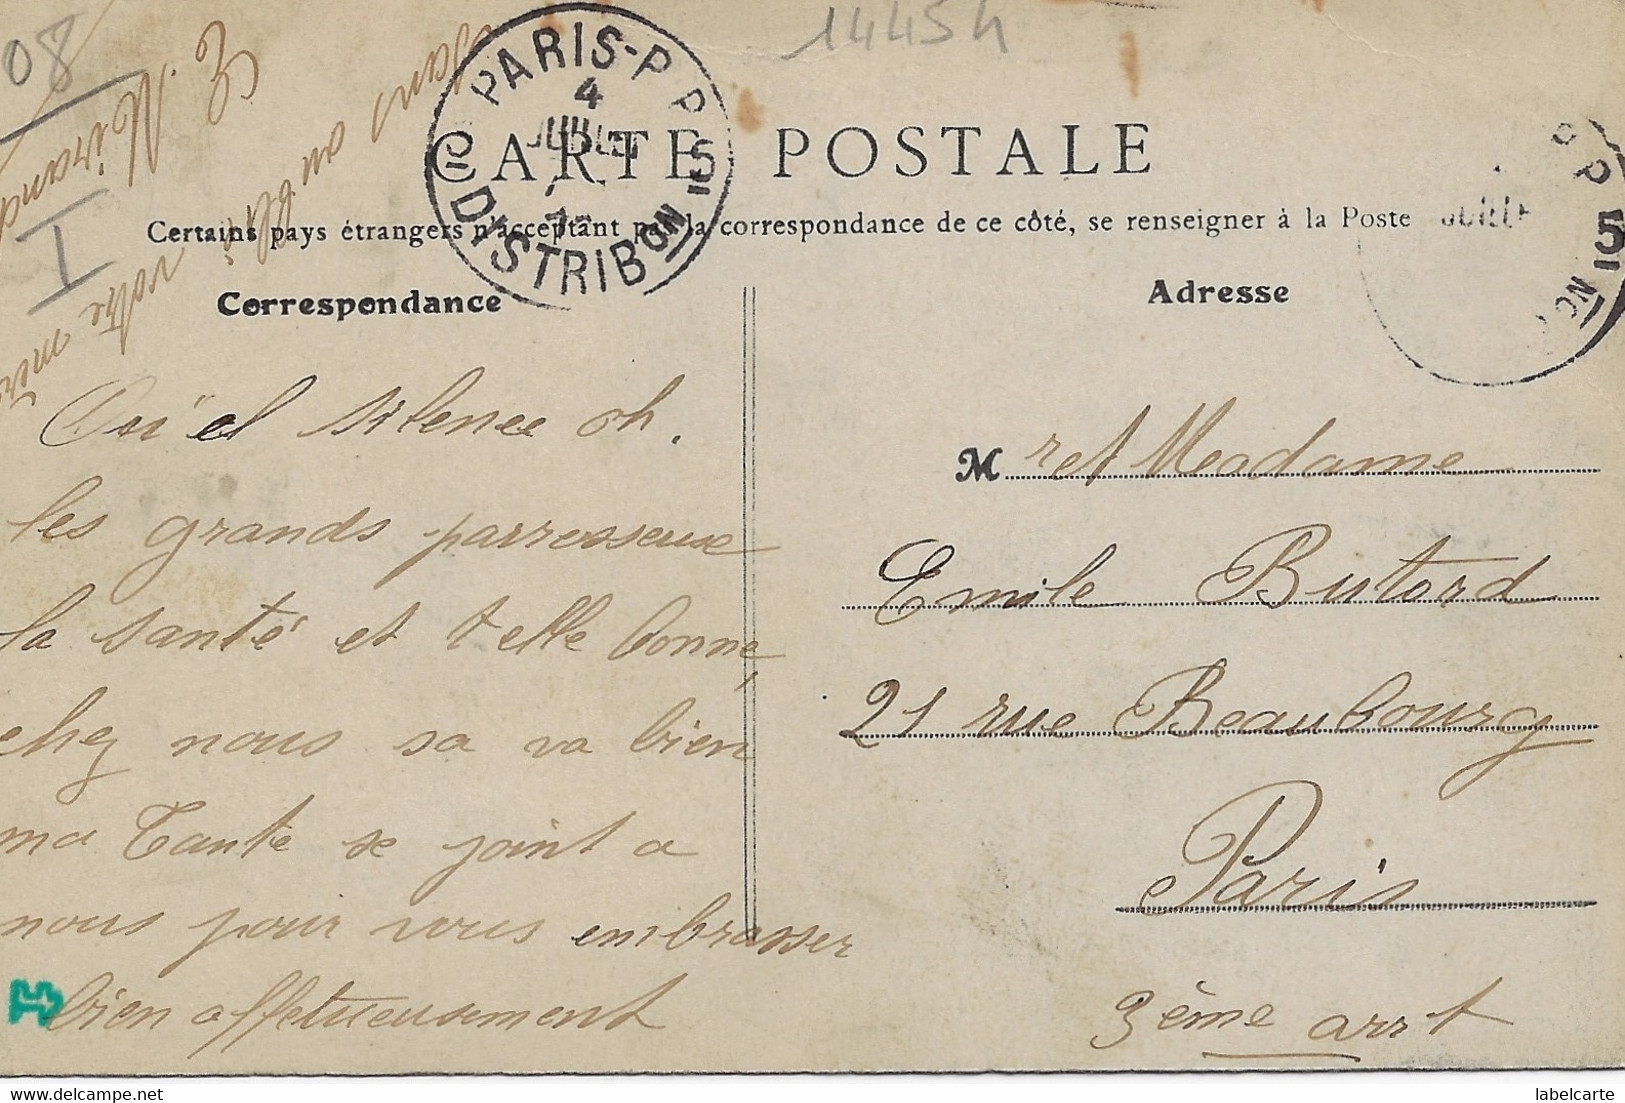 08
14454
PARIS-P.P
4
JUIL
DISTRIBON
CARTE POSTALE
Certains pays étrangers n'acceptent pas la correspondance de ce côté, se renseigner à la Poste
JUILLE
5
I
Correspondance
Adresse
Qu'el silence oh.
les grands parresseuse
la santé et t elle bonne,
chez nous sa va bien
ma Tante se joint a
nous pour vous embrasser
bien affetueusement
votre
E. Mirand
M r et Madame
Emile Butard
21 rue Beaubourg
Paris
3ème arrt
labelcarte